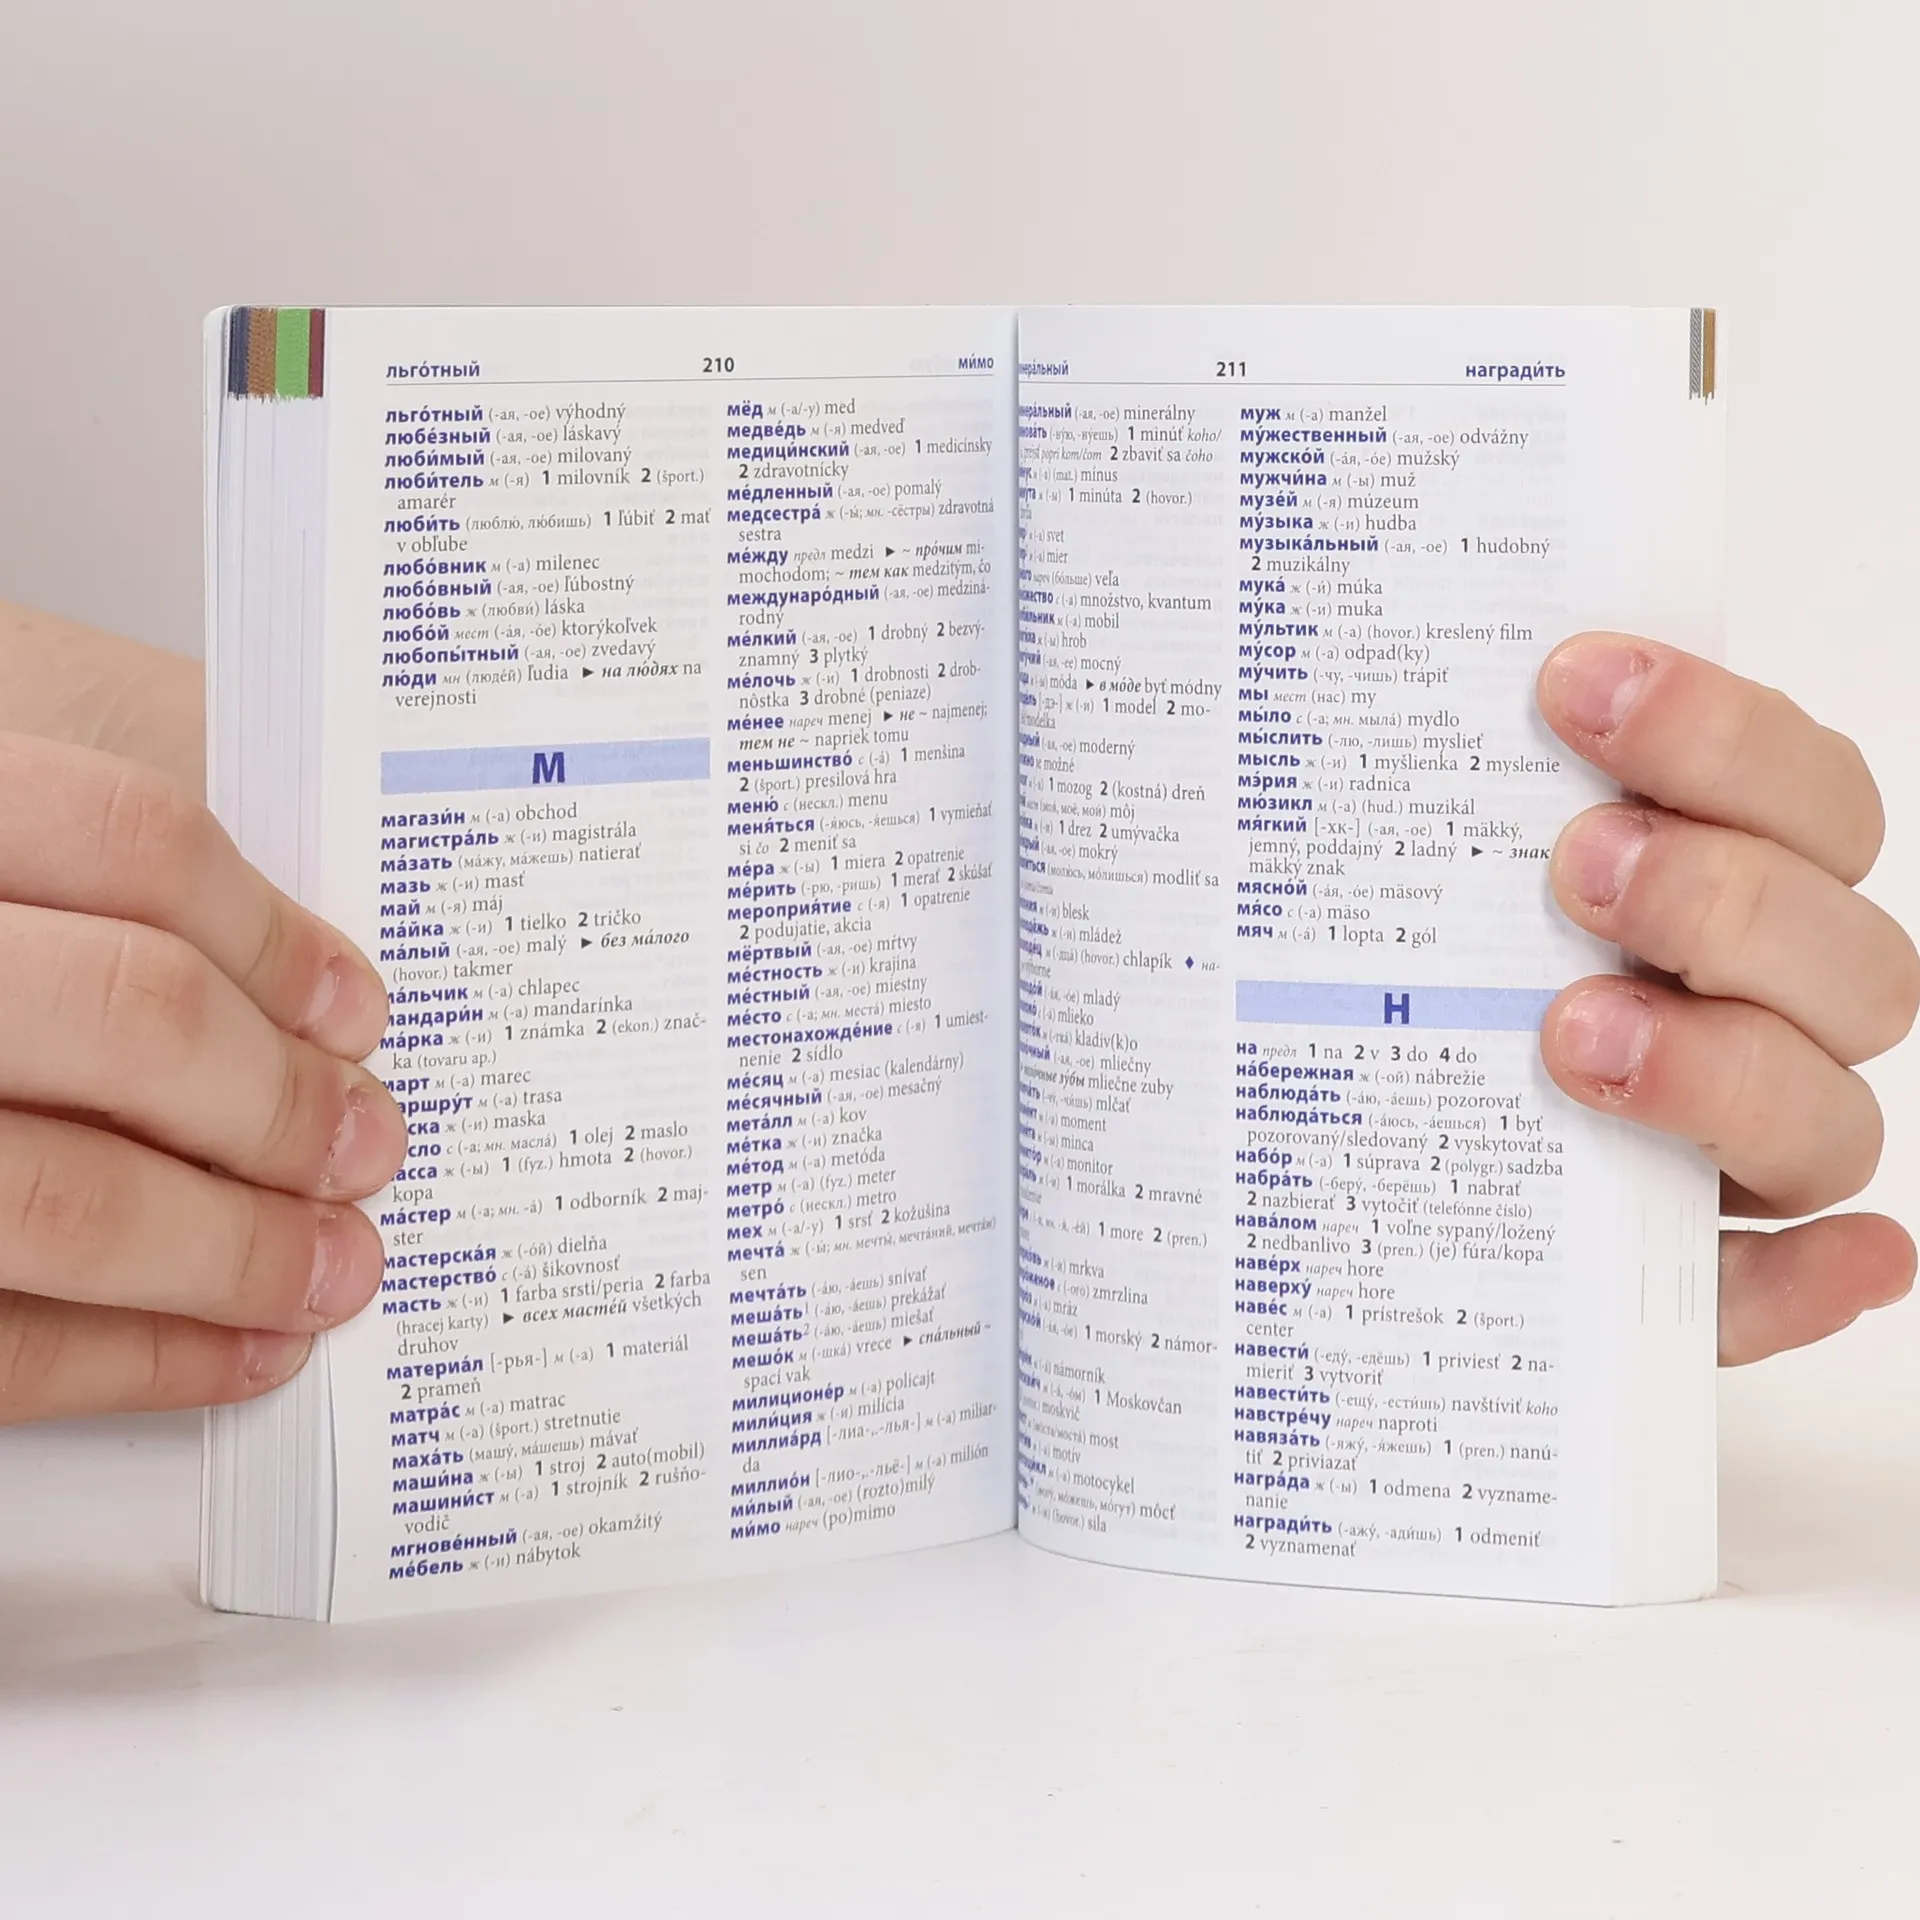 льго́тный 210 ми́мо
льго́тный (-ая, -ое) výhodný
любе́зный (-ая, -ое) láskavý
люби́мый (-ая, -ое) milovaný
люби́тель м (-я) 1 milovník 2 (šport.)
amarér
люби́ть (люблю́, лю́бишь) 1 ľúbiť 2 mať
v obľube
любо́вник м (-а) milenec
любо́вный (-ая, -ое) ľúbostný
любо́вь ж (любви́) láska
любо́й мест (-а́я, -о́е) ktorýkoľvek
любопы́тный (-ая, -ое) zvedavý
лю́ди мн (люде́й) ľudia ► на лю́дях na
verejnosti
М
магази́н м (-а) obchod
магистра́ль ж (-и) magistrála
ма́зать (ма́жу, ма́жешь) natierať
мазь ж (-и) masť
май м (-я) máj
ма́йка ж (-и) 1 tielko 2 tričko
ма́лый (-ая, -ое) malý ► без ма́лого
(hovor.) takmer
ма́льчик м (-а) chlapec
мандари́н м (-а) mandarínka
ма́рка ж (-и) 1 známka 2 (ekon.) znač-
ka (tovaru ap.)
март м (-а) marec
м (-а) trasa
ж (-и) maska
с (-а; мн. масла́) 1 olej 2 maslo
ж (-ы) 1 (fyz.) hmota 2 (hovor.)
kopa
ма́стер м (-а; мн. -а́) 1 odborník 2 maj-
ster
мастерска́я ж (-о́й) dielňa
мастерство́ с (-а́) šikovnosť
масть ж (-и) 1 farba srsti/peria 2 farba
(hracej karty) ► всех масте́й všetkých
druhov
материа́л [-рья-] м (-а) 1 materiál
2 prameň
матра́с м (-а) matrac
матч м (-а) (šport.) stretnutie
маха́ть (машу́, ма́шешь) mávať
маши́на ж (-ы) 1 stroj 2 auto(mobil)
машини́ст м (-а) 1 strojník 2 rušňo-
vodič
мгнове́нный (-ая, -ое) okamžitý
ме́бель ж (-и) nábytok
мёд м (-а/-у) med
медве́дь м (-я) medveď
медици́нский (-ая, -ое) 1 medicínsky
2 zdravotnícky
ме́дленный (-ая, -ое) pomalý
медсестра́ ж (-ы́; мн. -сёстры) zdravotná
sestra
ме́жду предл medzi ► ~ про́чим mi-
mochodom; ~ тем как medzitým, čo
междунаро́дный (-ая, -ое) medziná-
rodný
ме́лкий (-ая, -ое) 1 drobný 2 bezvý-
znamný 3 plytký
ме́лочь ж (-и) 1 drobnosti 2 drob-
nôstka 3 drobné (peniaze)
ме́нее нареч menej ► не ~ najmenej;
тем не ~ napriek tomu
меньшинство́ с (-а́) 1 menšina
2 (šport.) presilová hra
меню́ с (нескл.) menu
меня́ться (-я́юсь, -я́ешься) 1 vymieňať
si čo 2 meniť sa
ме́ра ж (-ы) 1 miera 2 opatrenie
ме́рить (-рю, -ришь) 1 merať 2 skúšať
мероприя́тие с (-я) 1 opatrenie
2 podujatie, akcia
мёртвый (-ая, -ое) mŕtvy
ме́стность ж (-и) krajina
ме́стный (-ая, -ое) miestny
ме́сто с (-а; мн. места́) miesto
местонахожде́ние с (-я) 1 umiest-
nenie 2 sídlo
ме́сяц м (-а) mesiac (kalendárny)
ме́сячный (-ая, -ое) mesačný
мета́лл м (-а) kov
ме́тка ж (-и) značka
ме́тод м (-а) metóda
метр м (-а) (fyz.) meter
метро́ с (нескл.) metro
мех м (-а/-у) 1 srsť 2 kožušina
мечта́ ж (-ы́; мн. мечты́, мечта́ний, мечта́м)
sen
мечта́ть (-а́ю, -а́ешь) snívať
меша́ть¹ (-а́ю, -а́ешь) prekážať
меша́ть² (-а́ю, -а́ешь) miešať
мешо́к м (-шка́) vrece ► спа́льный ~
spací vak
милиционе́р м (-а) policajt
мили́ция ж (-и) milícia
миллиа́рд [-лиа-,.-лья-] м (-а) miliar-
da
миллио́н [-лио-,.-льё-] м (-а) milión
ми́лый (-ая, -ое) (rozto)milý
ми́мо нареч (po)mimo
211 награди́ть
(-ая, -ое) minerálny
1 minúť koho/
2 zbaviť sa čoho
(mat.) mínus
1 minúta 2 (hovor.)
svet
mier
нареч (бо́льше) veľa
с (-а) množstvo, kvantum
м (-а) mobil
(-ы) hrob
(-ая, -ее) mocný
(-ы) móda ► в мо́де byť módny
[-дэ-] ж (-и) 1 model 2 mo-
(-ая, -ое) moderný
možné
1 mozog 2 (kostná) dreň
môj
1 drez 2 umývačka
(-ая, -ое) mokrý
(молю́сь, мо́лишься) modliť sa
ж (-и) blesk
ж (-и) mládež
(hovor.) chlapík ♦ на-
(-а́я, -о́е) mladý
с (-а́) mlieko
м (-тка́) kladiv(k)o
(-ая, -ое) mliečny
зу́бы mliečne zuby
(-чу́, -чи́шь) mlčať
м (-а) moment
(-ы) minca
м (-а) monitor
1 morálka 2 mravné
1 more 2 (pren.)
ж (-и) mrkva
с (-ого) zmrzlina
м (-а) mráz
(-а́я, -о́е) 1 morský 2 námor-
(-а́) námorník
1 Moskovčan
moskvič
most
(-а) motív
м (-а) motocykel
(могу́, мо́жешь, мо́гут) môcť
(hovor.) sila
муж м (-а) manžel
му́жественный (-ая, -ое) odvážny
мужско́й (-а́я, -о́е) mužský
мужчи́на м (-ы) muž
музе́й м (-я) múzeum
му́зыка ж (-и) hudba
музыка́льный (-ая, -ое) 1 hudobný
2 muzikálny
мука́ ж (-и́) múka
му́ка ж (-и) muka
му́льтик м (-а) (hovor.) kreslený film
му́сор м (-а) odpad(ky)
му́чить (-чу, -чишь) trápiť
мы мест (нас) my
мы́ло с (-а; мн. мыла́) mydlo
мы́слить (-лю, -лишь) myslieť
мысль ж (-и) 1 myšlienka 2 myslenie
мэ́рия ж (-и) radnica
мю́зикл м (-а) (hud.) muzikál
мя́гкий [-хк-] (-ая, -ое) 1 mäkký,
jemný, poddajný 2 ladný ► ~ знак
mäkký znak
мясно́й (-а́я, -о́е) mäsový
мя́со с (-а) mäso
мяч м (-а́) 1 lopta 2 gól
Н
на предл 1 na 2 v 3 do 4 do
на́бережная ж (-ой) nábrežie
наблюда́ть (-а́ю, -а́ешь) pozorovať
наблюда́ться (-а́юсь, -а́ешься) 1 byť
pozorovaný/sledovaný 2 vyskytovať sa
набо́р м (-а) 1 súprava 2 (polygr.) sadzba
набра́ть (-беру́, -берёшь) 1 nabrať
2 nazbierať 3 vytočiť (telefónne číslo)
нава́лом нареч 1 voľne sypaný/ložený
2 nedbanlivo 3 (pren.) (je) fúra/kopa
наве́рх нареч hore
наверху́ нареч hore
наве́с м (-а) 1 prístrešok 2 (šport.)
center
навести́ (-еду́, -едёшь) 1 priviesť 2 na-
mieriť 3 vytvoriť
навести́ть (-ещу́, -ести́шь) navštíviť koho
навстре́чу нареч naproti
навяза́ть (-яжу́, -я́жешь) 1 (pren.) nanú-
tiť 2 priviazať
награ́да ж (-ы) 1 odmena 2 vyzname-
nanie
награди́ть (-ажу́, -ади́шь) 1 odmeniť
2 vyznamenať